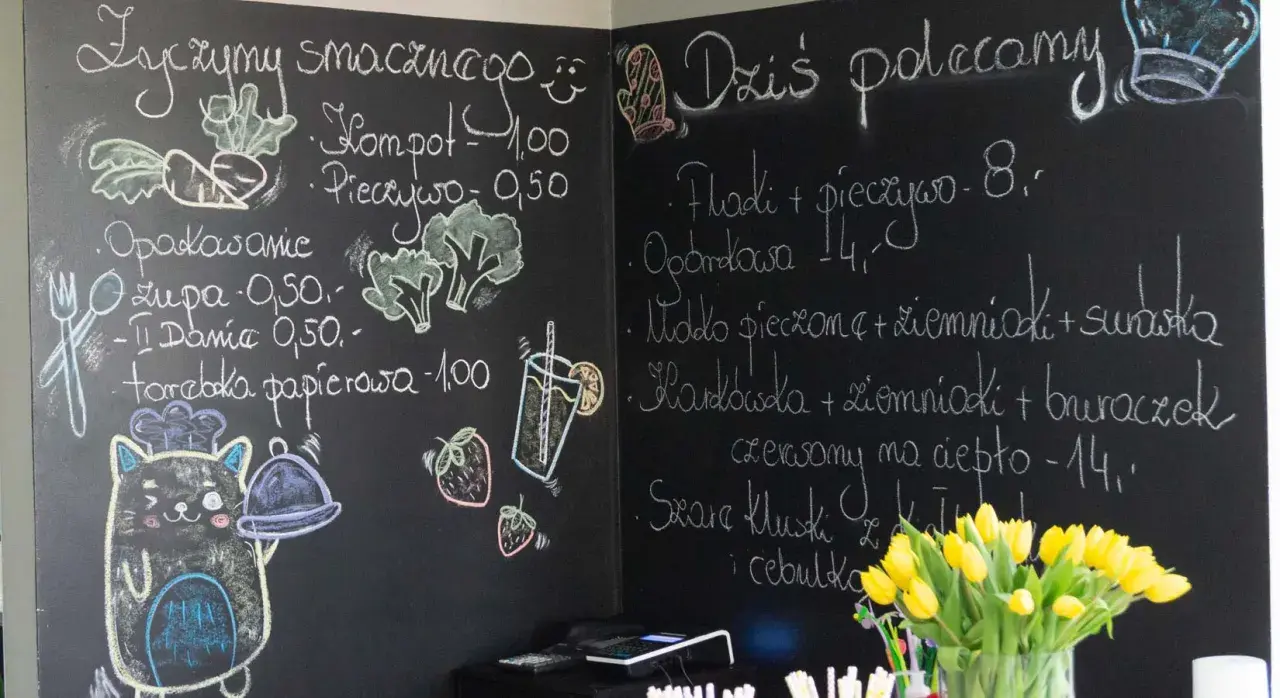 Życzymy smacznego
· Kompot - 1,00
· Pieczywo - 0,50
· Opakowanie
- zupa - 0,50.-
- II Danie 0,50.-
- torebka papierowa - 1,00
Dziś polecamy
· Flaki + pieczywo - 8,-
· Ogórkowa - 14,-
· Udko pieczone + ziemniaki + surówka
· Karkówka + ziemniaki + buraczek
czerwony na ciepło - 14,-
· Szare kluski z
i cebulką